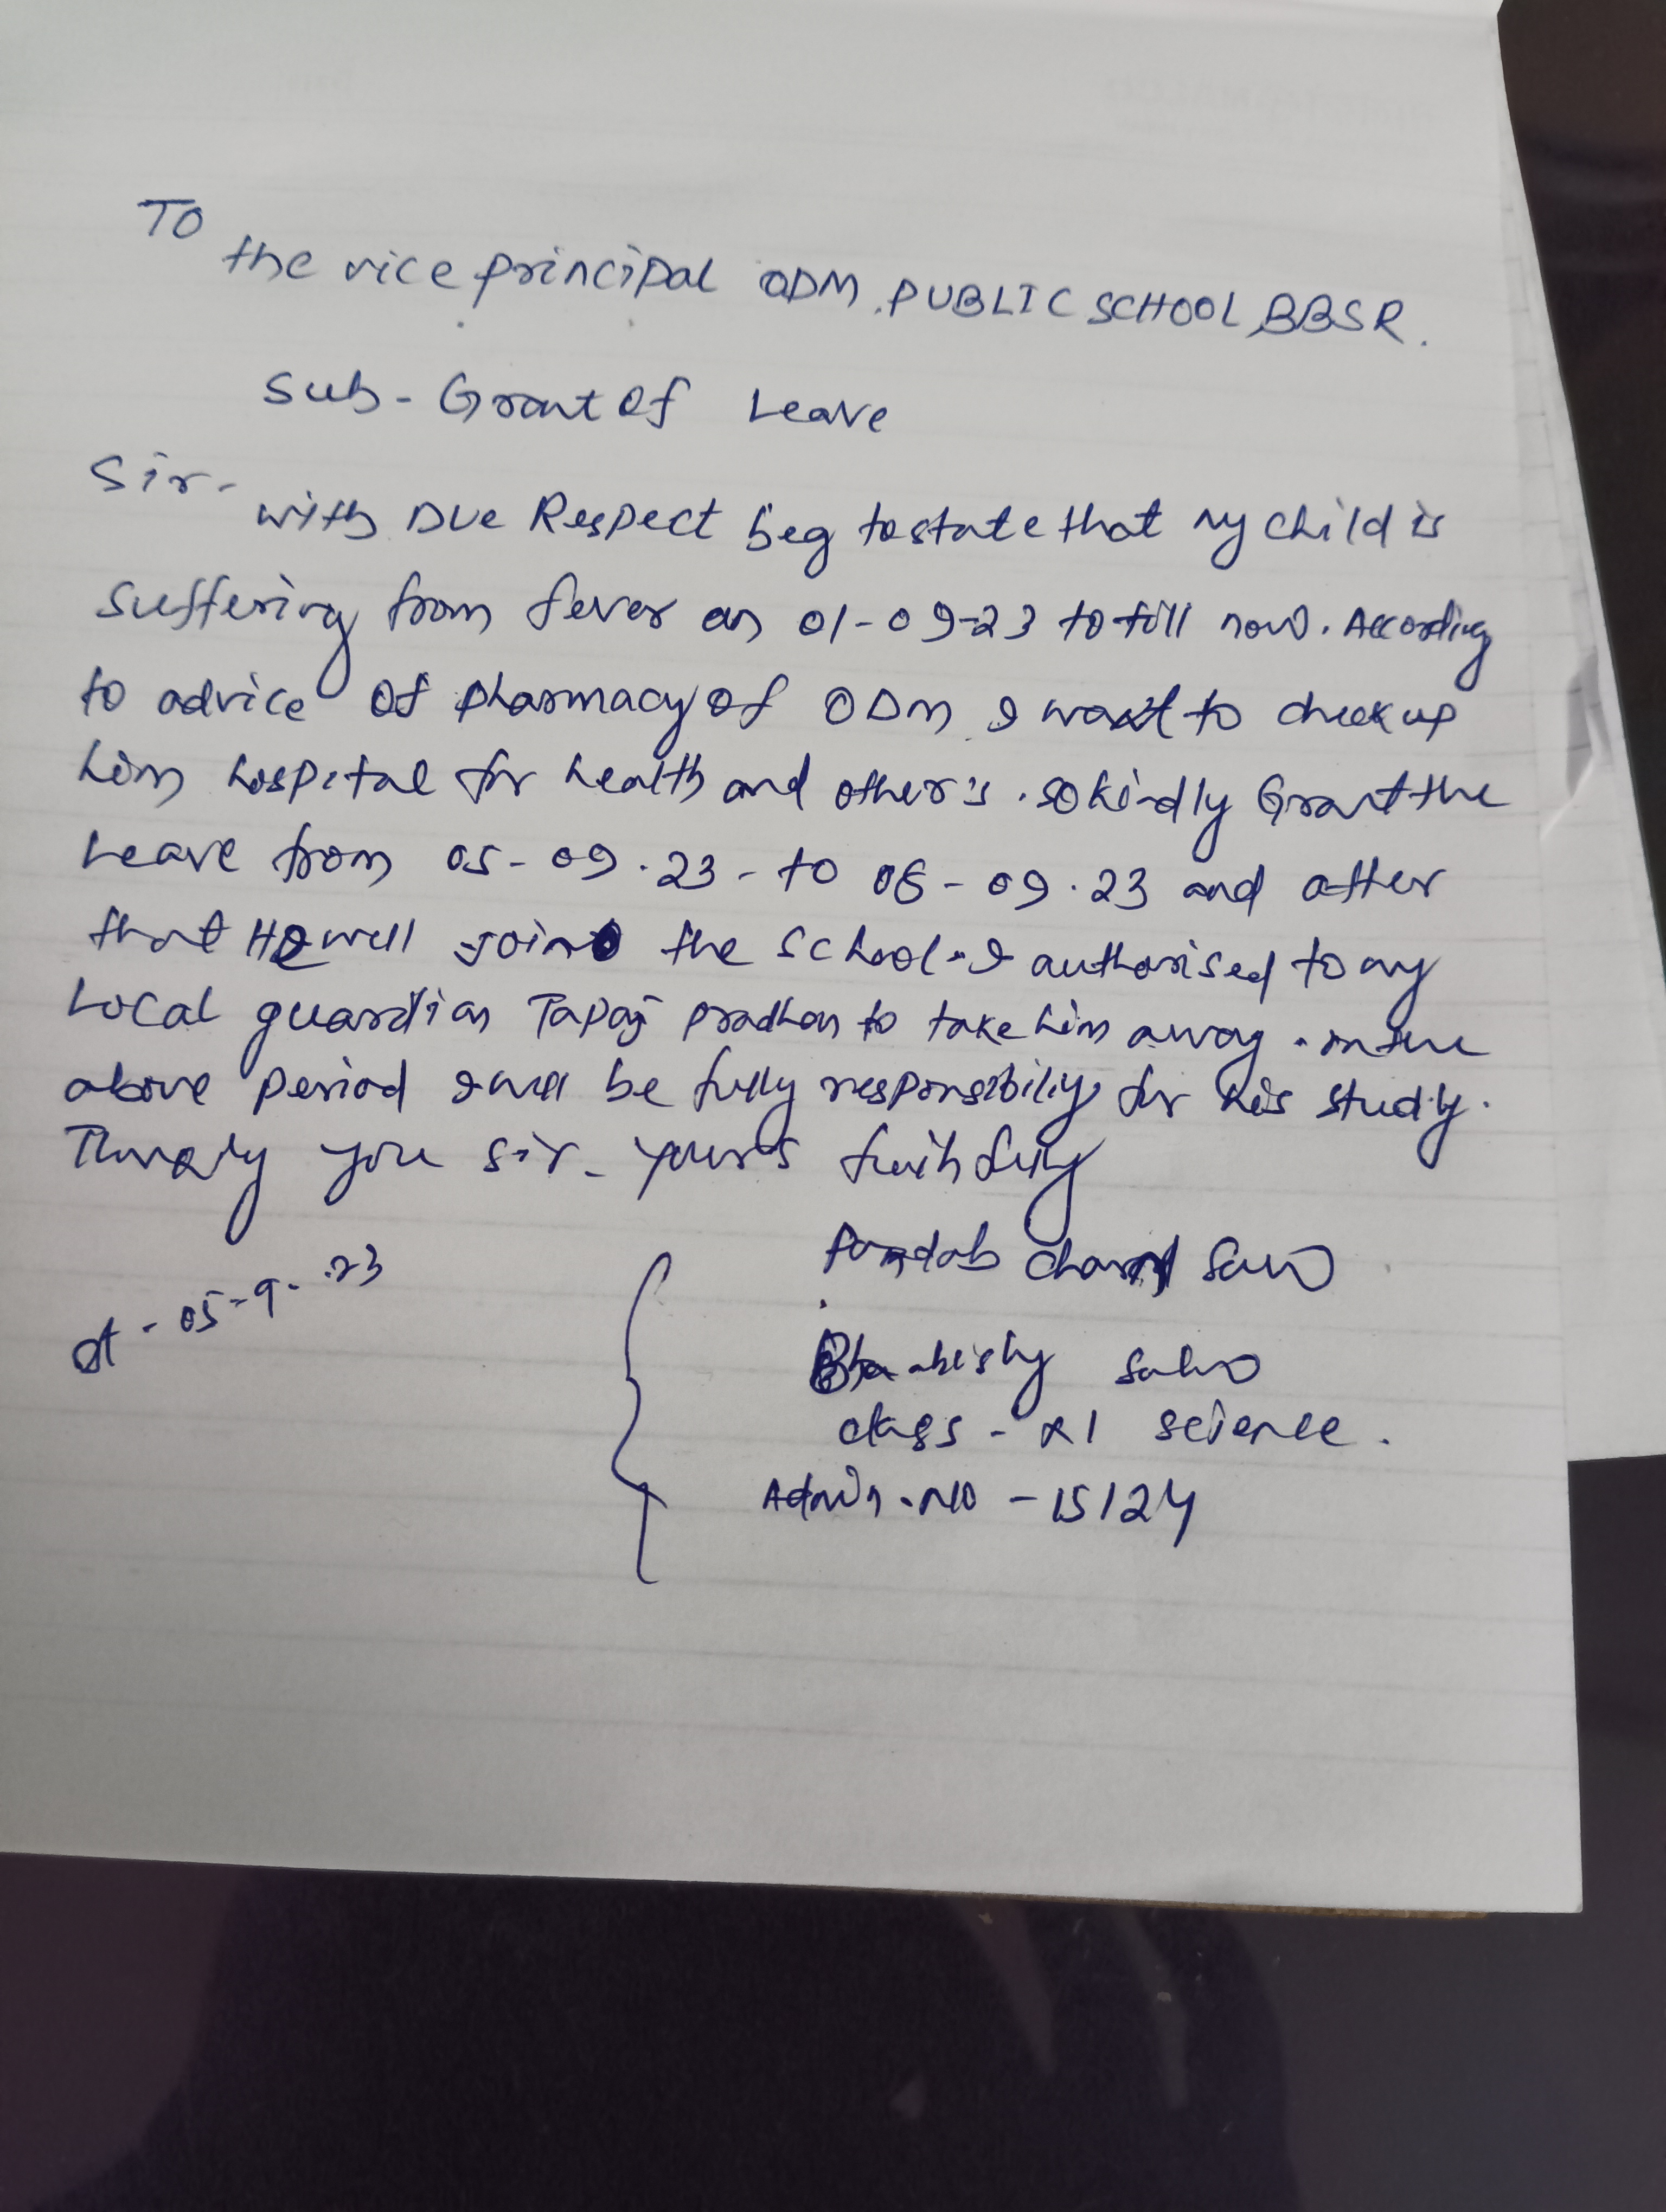 TO
the vice principal ODM PUBLIC SCHOOL, BBSR.
Sub - Grant of Leave
Sir -
with Due Respect beg to state that my child is
suffering from fever on 01-09-23 to till now. According
to advice of pharmacy of ODM I want to check up
him hospital for health and other's. so kindly Grant the
Leave from 05-09.23 - to 06-09.23 and after
that He will join the school. I authorised to my
Local guardian Tapas pradhan to take him away. in the
above period I will be fully responsibility for his study.
you sir. yours
dt - 05-9-23
Charan
Sahoo
class - XI science.
Admn. No - 15124